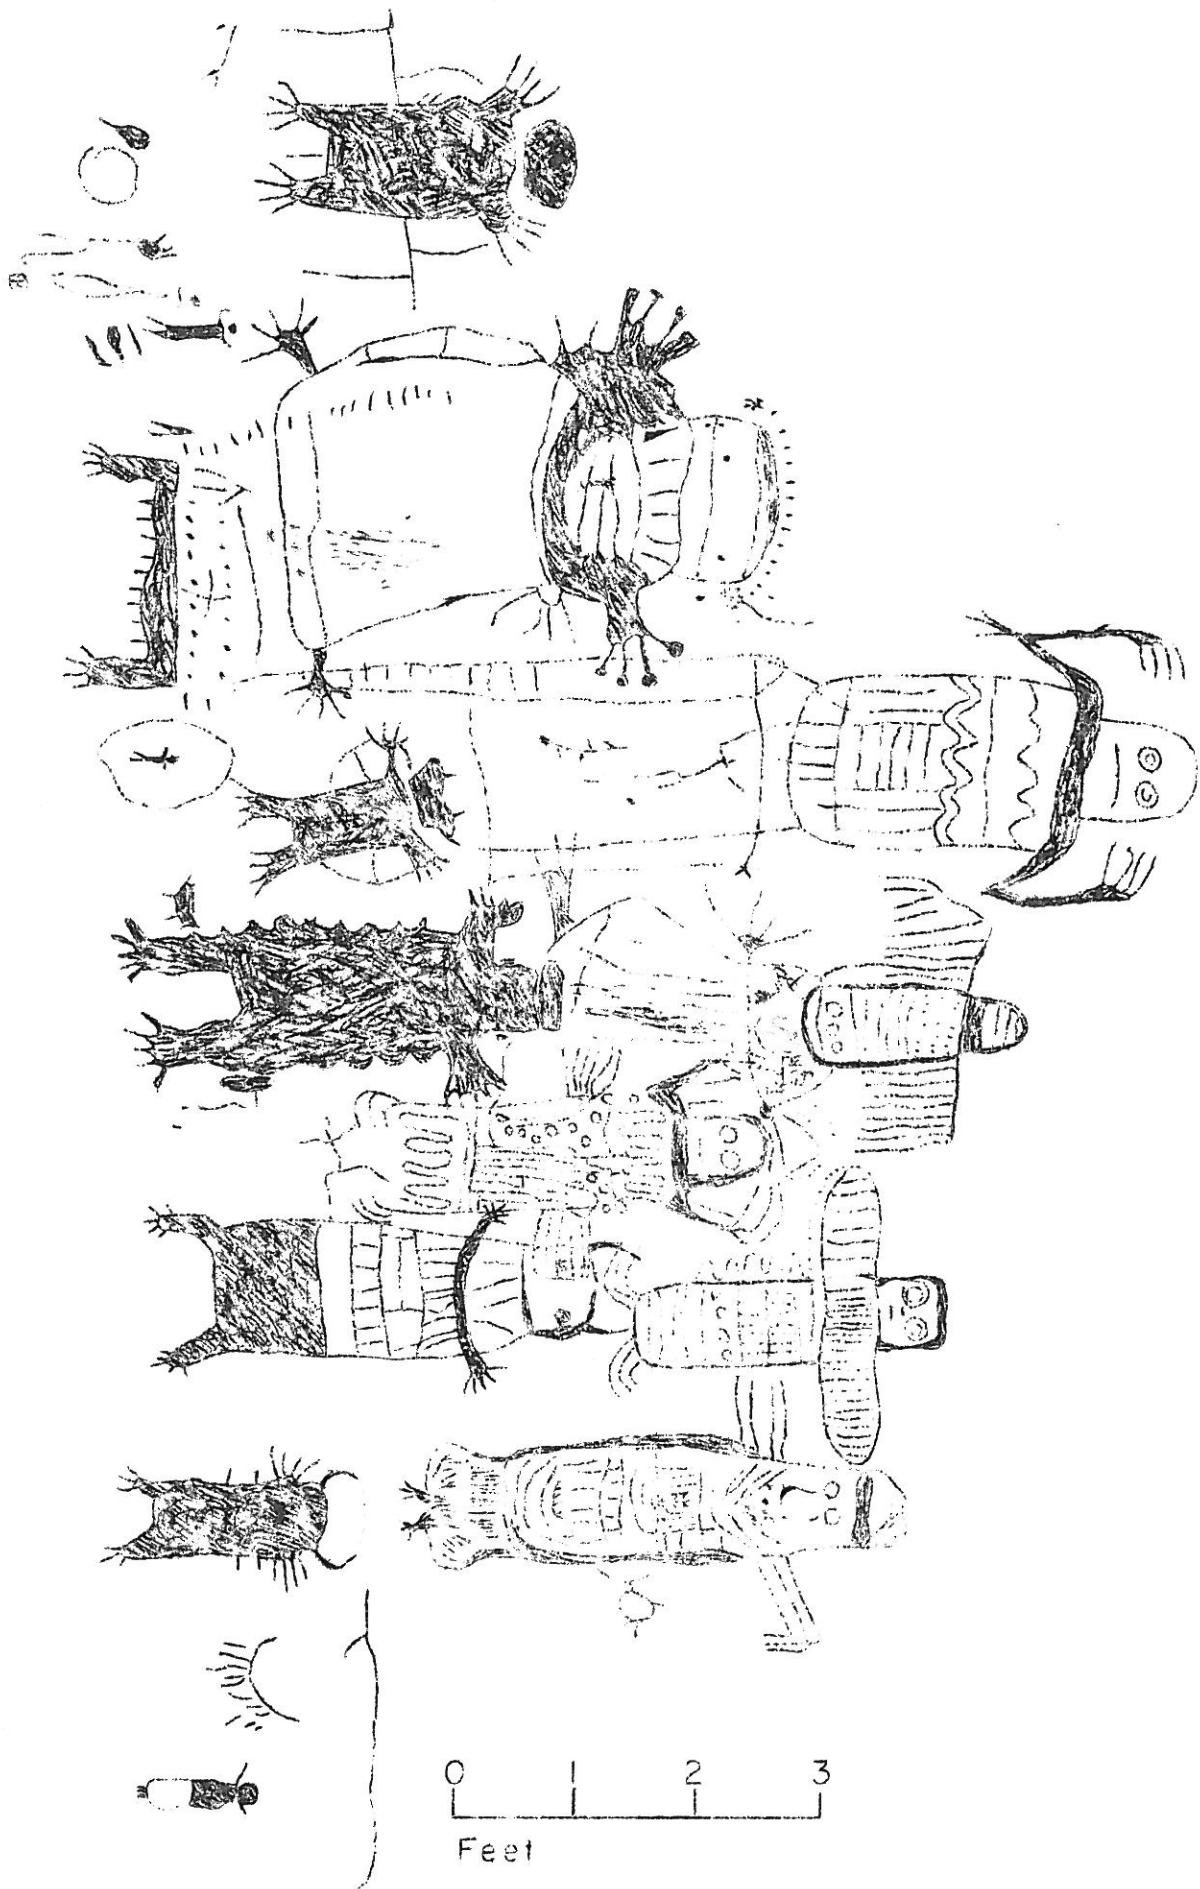 0 1 2 3
Feet